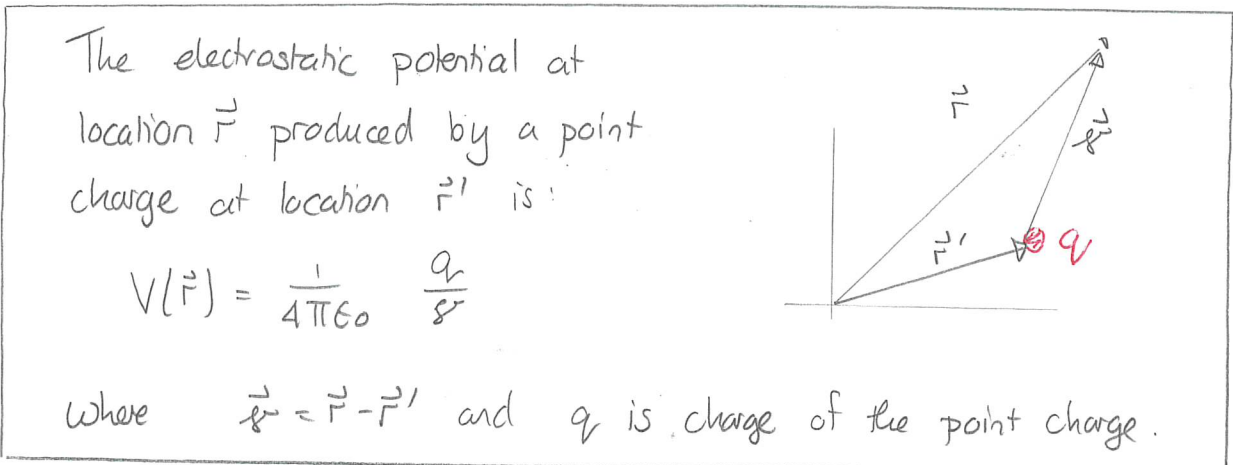 The electrostatic potential at
location r⃗ produced by a point
charge at location r⃗' is:
V(r⃗) = 1/(4πε₀) q/𝓇
where 𝓇⃗ = r⃗ - r⃗' and q is charge of the point charge.
r⃗
𝓇⃗
r⃗'
q